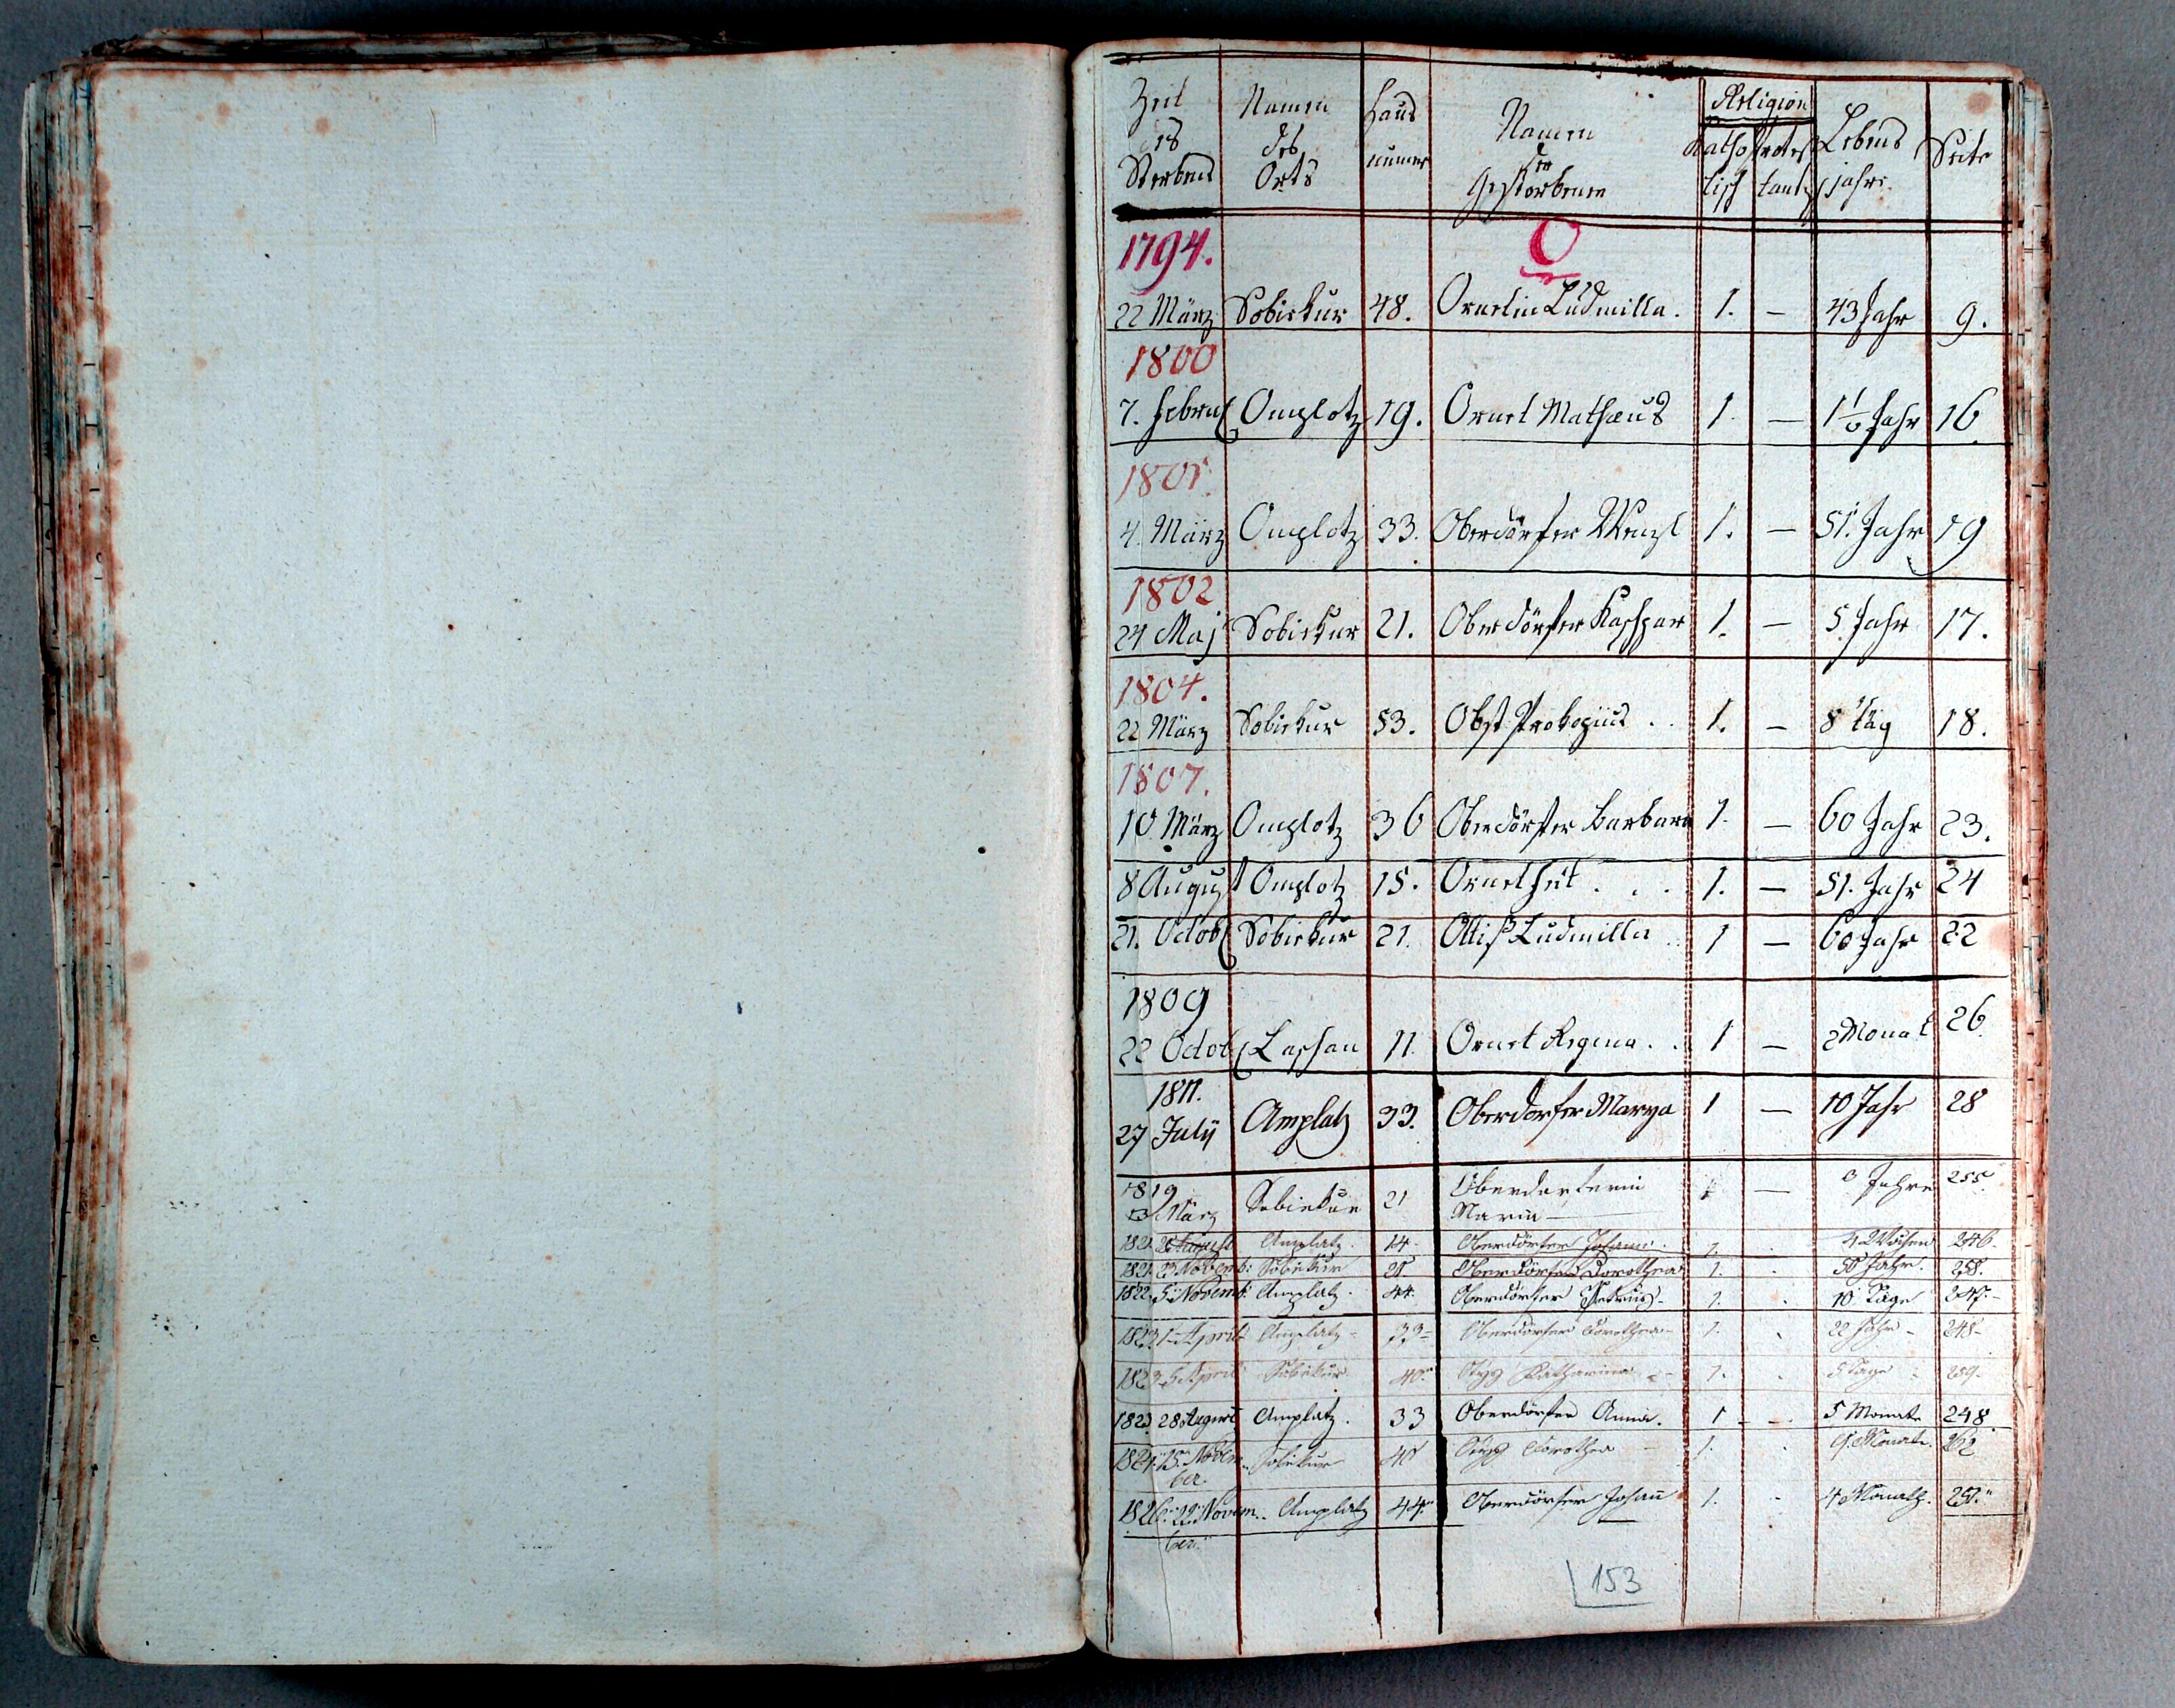 Zeit des Sterbens Namen des Orts Haus numer Namen der Gestorbenen Religion Katholisch Protestantisch Lebens jahre. Seite
1794. O
22 März Sobiekur 48. Ornetin Ludmilla. 1. – 43 Jahr 9.
1800
7. Februar Omplotz 19. Ornet Mathæus 1. – Jahr 16
1801.
4. März Omplotz 33. Oberdörfer Wenzl 1. – 51. Jahr 19
1802
24 Maj Sobiekur 21. Oberdörfer Kaschpar 1. – 5 Jahr 17.
1804.
22 März Sobiekur 53. Obst Prokopius . . 1. – 8 täg 18.
1807.
10 März Omplotz 36 Oberdörfer Barbara 1. – 60 Jahr 23.
8 August Omplotz 15. Ornet . . . 1. – 51. Jahr 24
21. Octob Sobiekur 21. Ludmilla 1 – 60 Jahr 22
1809
22 Octob Laschan 11. Ornet Regina . . 1 – 2 Monat 26
1811.
27 July Amplatz 33. Oberdorfer Marya 1 – 10 Jahr 28
1819
März Sobiekur 21 Oberdorferin Maria – 1 – Jahre 255
1821. August Amplatz. 14. Oberdörfer Johann. 1. . 4 Wochen 246.
1821. Novemb: Sobiekur 21 Oberdörfer Dorothea 1. . 50 Jahr. 258.
1822. 5. Novemb: Amplatz. 44. Oberdörfer Petrus – 1. . 10 Täge 247.
1823. 1. April Amplatz – 33 – Oberdörfer Dorothea – 1. . 22 Jahr – 248 –
1823. 5 April Sobiekur 40. Katharina – 1. . 5 Tage 259.
1823. 28 August Amplatz. 33 Oberdörfer Anna. 1 – – 5 Monate 248
1824. 13. November. Sobiekur 40 Dorothea – 1. . Monate. 262
1826. 22. November. Amplatz 44. Oberdörfer Johann 1. . 4 Monath. 251.
153